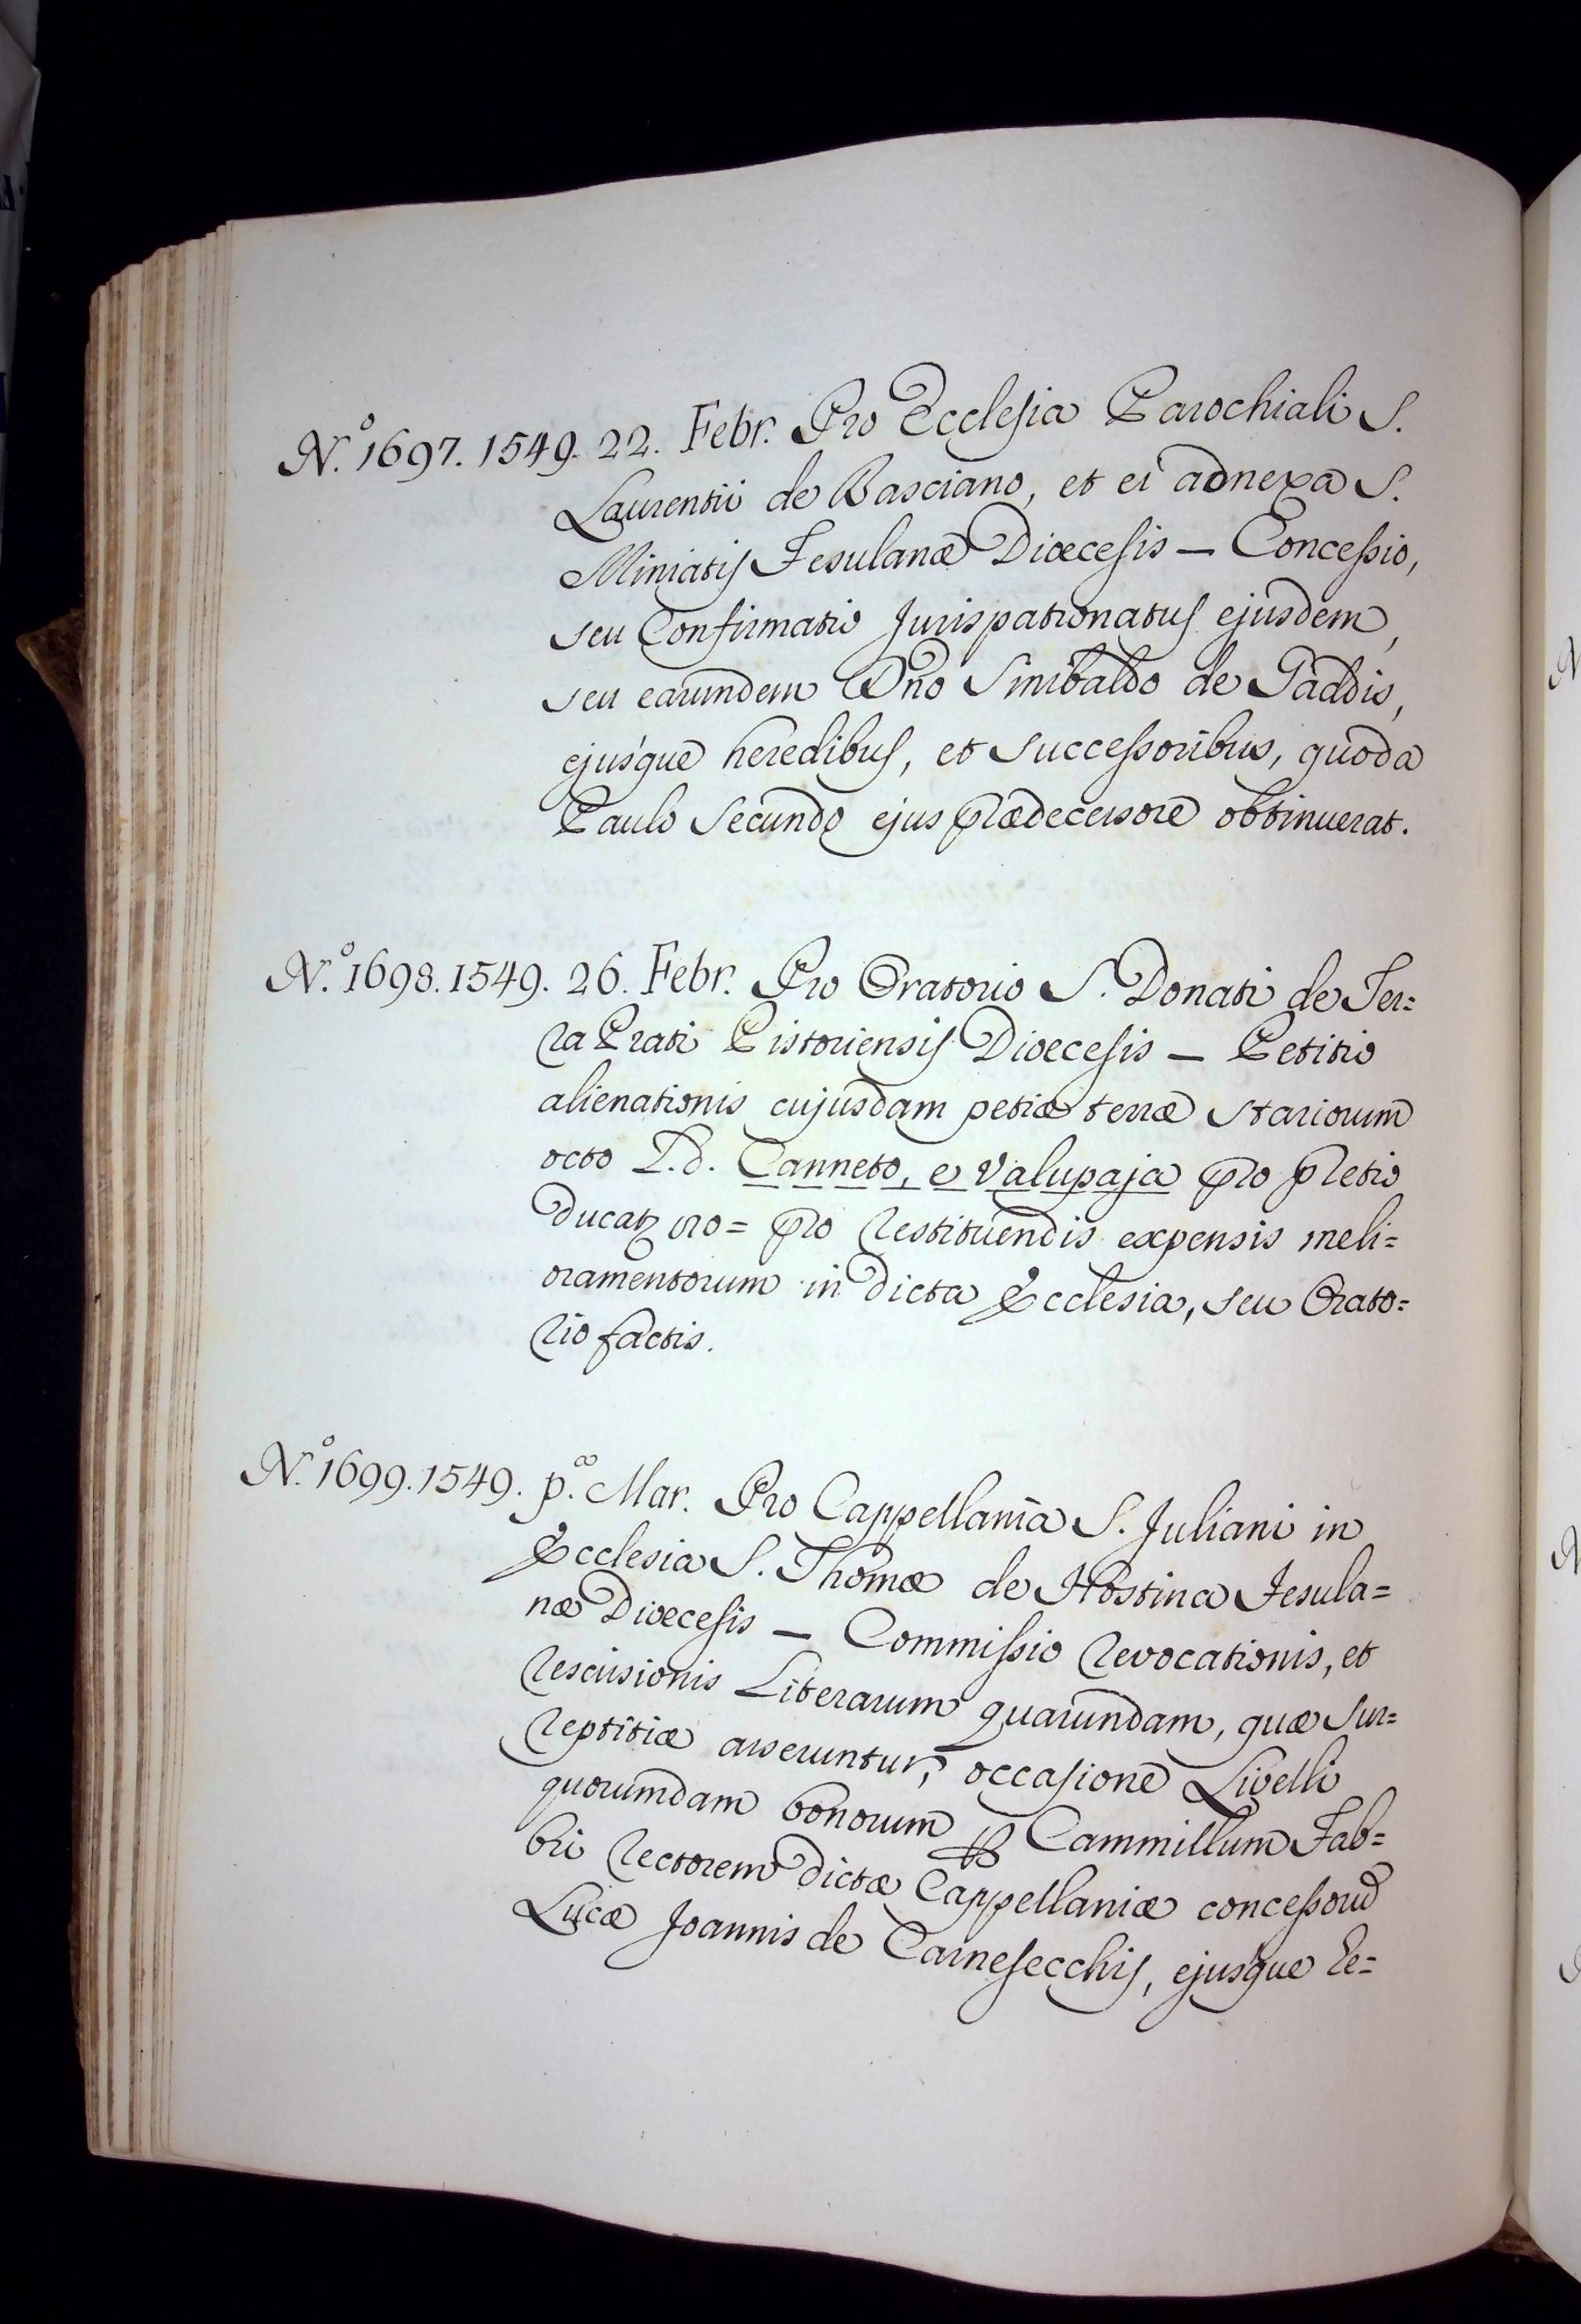 N.º 1697. 1549. 22. Febr. Pro Ecclesia Parochiali S.
Laurentii de Basciano, et ei adnexa S.
Miniatis Fesulanæ Diœcesis — Concessio,
seu Confirmatio Jurispatronatus ejusdem,
seu earumdem Dño Sinibaldo de Gaddis,
ejusque heredibus, et successoribus, quod a
Paulo Secundo ejus prædecessore obtinuerat.
N.º 1698. 1549. 26. Febr. Pro Oratorio S. Donati de Ter=
ra Prati Pistoriensis Diœcesis — Petitio
alienationis cujusdam petiæ terræ stariorum
octo L.d. Canneto, e Valupaja pro pretio
Ducat oro= pro restituendis expensis meli=
oramentorum in dicta Ecclesia, seu Orato=
rio factis.
N.º 1699. 1549. p.ª Mar. Pro Cappellania S. Juliani in
Ecclesia S. Thomæ de Hostina Fesula=
næ Diœcesis — Commissio revocationis, et
rescisionis Literarum quarundam, quæ sur=
reptitiæ asseruntur, occasione Livelli
quorumdam bonorum Cammillum Fab=
bri rectorem dictæ Cappellaniæ concessorū
Lucæ Joannis de Carnesecchis, ejusque he=